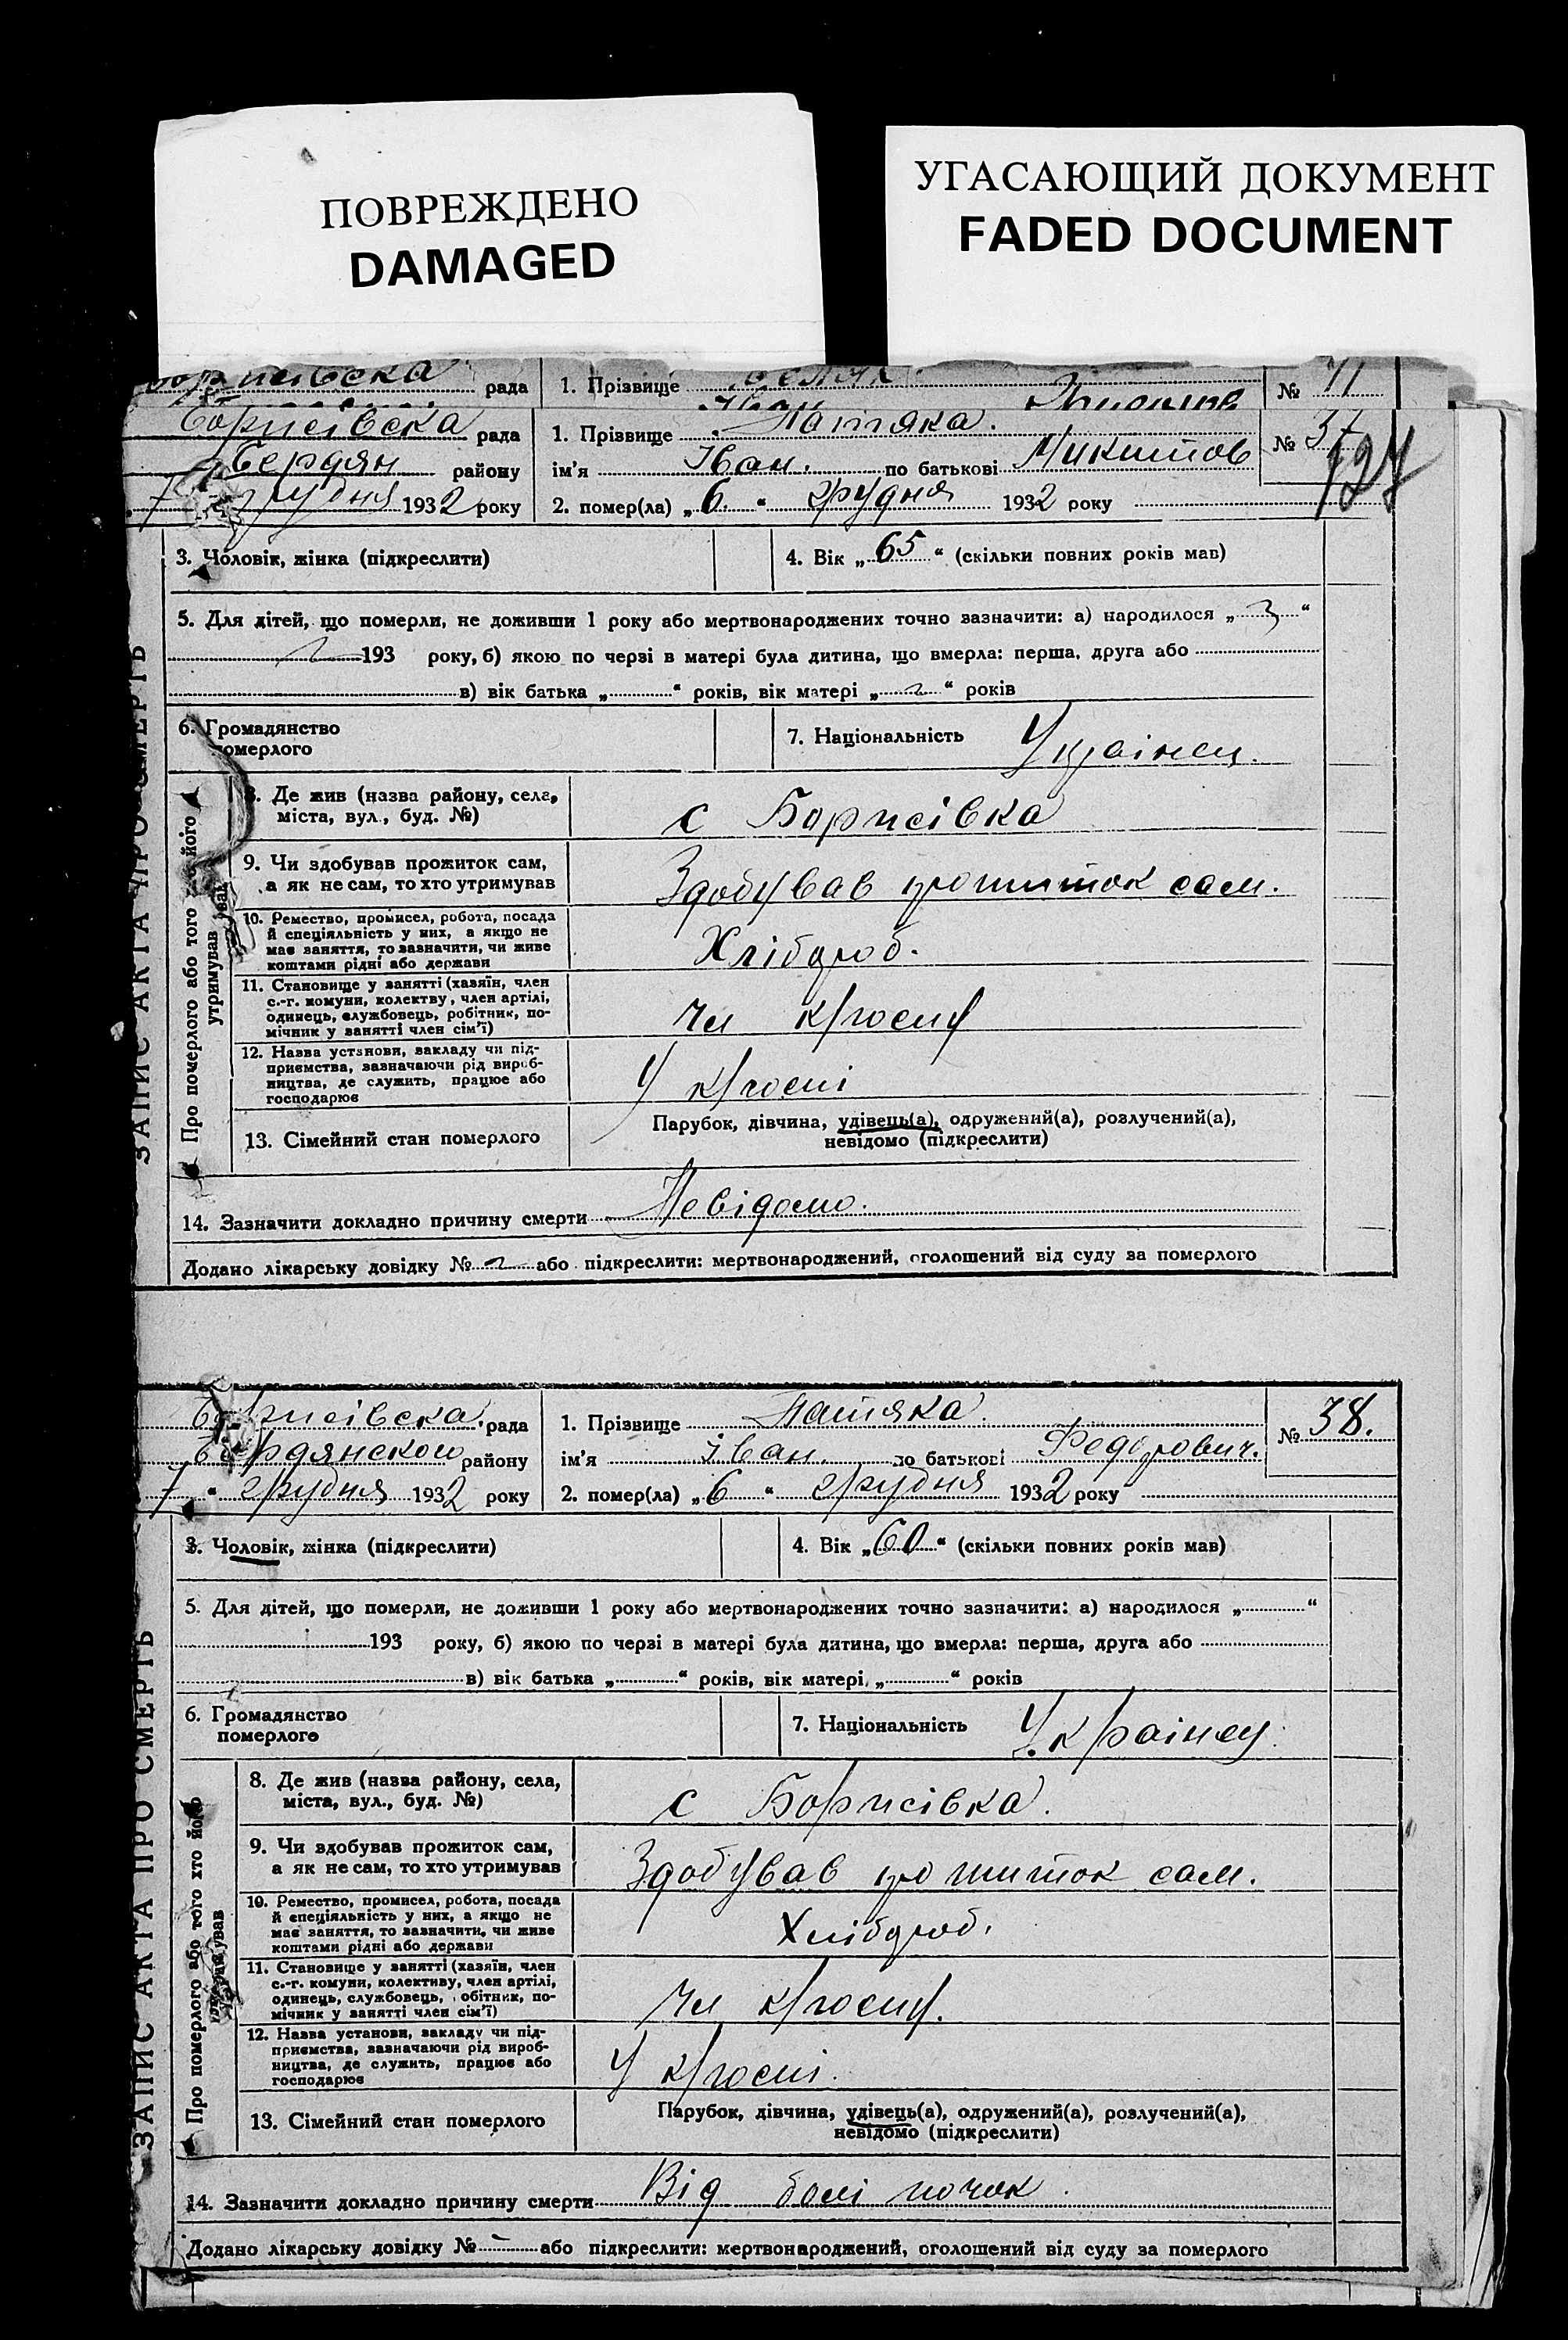 ПОВРЕЖДЕНО
DAMAGED
УГАСАЮЩИЙ ДОКУМЕНТ
FADED DOCUMENT
рада 1. Прізвище № 71
Борисівска рада 1. Прізвище Патяка. № 37
127
Бердян району ім'я Іван. по батькові Микитов
7 грудня 1932 року 2. помер(ла) „6.“ грудня 1932 року
ЗАПИС АКТА ПРО СМЕРТЬ
3. Чоловік, жінка (підкреслити) 4. Вік „65“ (скільки повних років мав)
5. Для дітей, що померли, не доживши 1 року або мертвонароджених точно зазначити: а) народилося „ “
193 року, б) якою по черзі в матері була дитина, що вмерла: перша, друга або
в) вік батька „ “ років, вік матері „ “ років
6. Громадянство померлого 7. Національність Украінец.
Про померлого або того його утримував
8. Де жив (назва району, села,
міста, вул., буд. №) с Борисівка
9. Чи здобував прожиток сам,
а як не сам, то хто утримував Здобував прожиток сам.
10. Ремество, промисел, робота, посада
й спеціяльність у них, а якщо не
має заняття, то зазначити, чи живе
коштами рідні або держави Хлібороб.
11. Становище у занятті (хазяїн, член
с.-г. комуни, колективу, член артілі,
одинець, службовець, робітник, по-
мічник у занятті член сім'ї) чл к/госпу
12. Назва установи, закладу чи під-
приємства, зазначаючи рід вироб-
ництва, де служить, працює або
господарює У к/госпі
13. Сімейний стан померлого Парубок, дівчина, удівець(а), одружений(а), розлучений(а),
невідомо (підкреслити)
14. Зазначити докладно причину смерти Невідомо.
Додано лікарську довідку № або підкреслити: мертвонароджений, оголошений від суду за померлого
Борисівска рада 1. Прізвище Патяка. № 38.
Бердянского району ім'я Іван. по батькові Федорович.
7 “ грудня 1932 року 2. помер(ла) „6“ грудня 1932 року
ЗАПИС АКТА ПРО СМЕРТЬ
3. Чоловік, жінка (підкреслити) 4. Вік „60“ (скільки повних років мав)
5. Для дітей, що померли, не доживши 1 року або мертвонароджених точно зазначити: а) народилося „ “
193 року, б) якою по черзі в матері була дитина, що вмерла: перша, друга або
в) вік батька „ “ років, вік матері „ “ років
6. Громадянство померлого 7. Національність Украінец.
Про померлого або того хто його утримував
8. Де жив (назва району, села,
міста, вул., буд. №) с Борисівка.
9. Чи здобував прожиток сам,
а як не сам, то хто утримував Здобував прожиток сам.
10. Ремество, промисел, робота, посада
й спеціяльність у них, а якщо не
має заняття, то зазначити, чи живе
коштами рідні або держави Хлібороб.
11. Становище у занятті (хазяїн, член
с.-г. комуни, колективу, член артілі,
одинець, службовець, робітник, по-
мічник у занятті член сім'ї) чл к/госпу.
12. Назва установи, закладу чи під-
приємства, зазначаючи рід вироб-
ництва, де служить, працює або
господарює У к/госпі.
13. Сімейний стан померлого Парубок, дівчина, удівець(а), одружений(а), розлучений(а),
невідомо (підкреслити)
14. Зазначити докладно причину смерти Від болі почок.
Додано лікарську довідку № або підкреслити: мертвонароджений, оголошений від суду за померлого